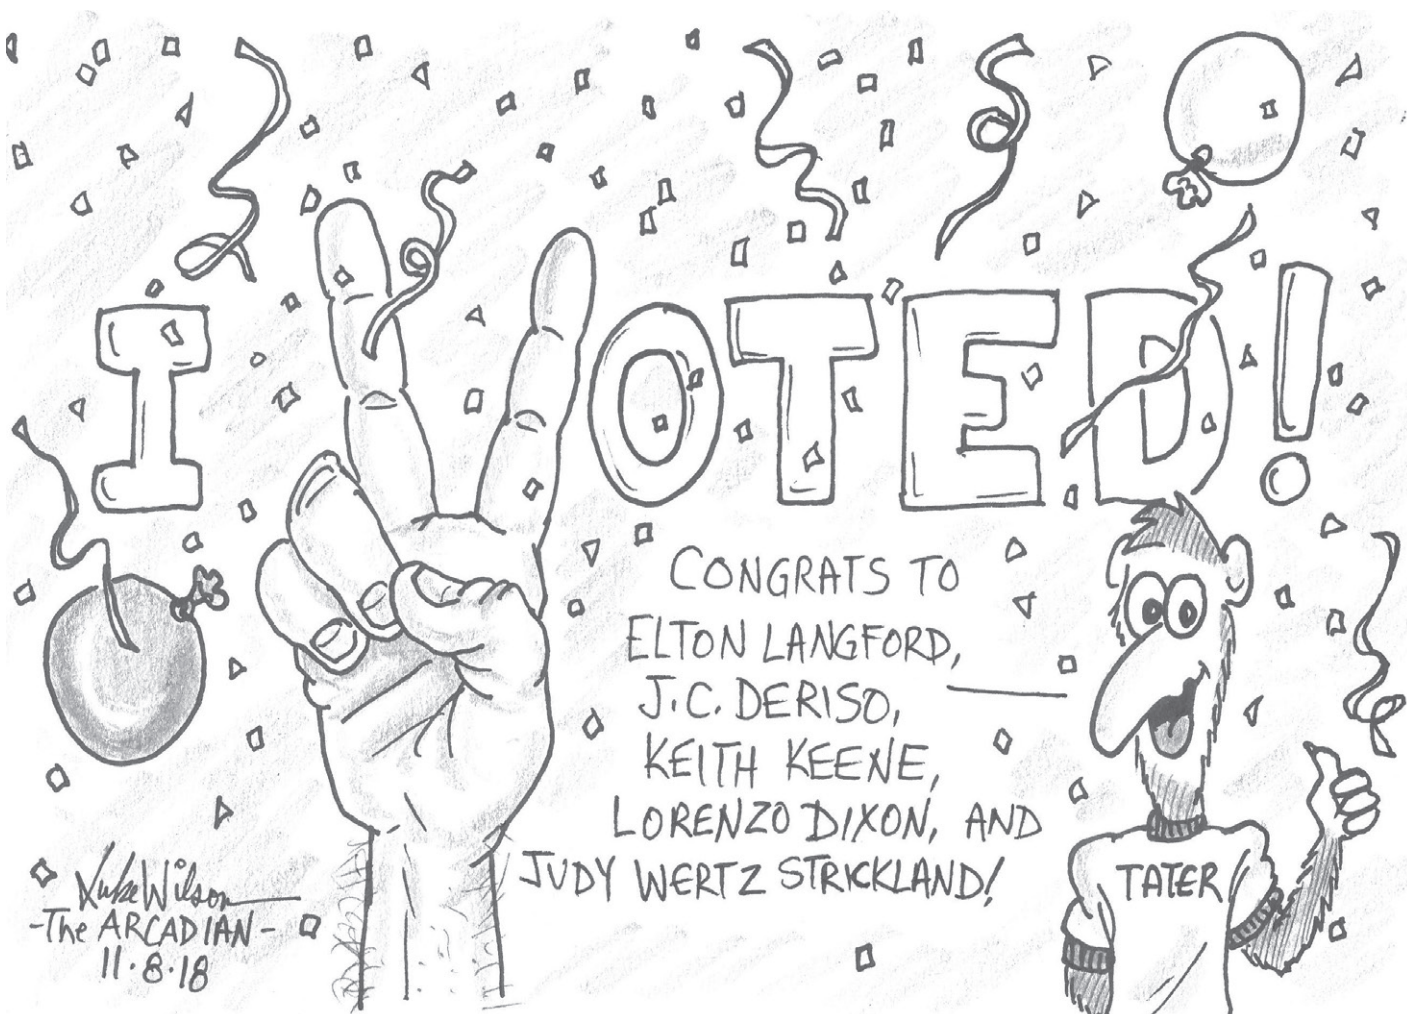 I VOTED!
CONGRATS TO
ELTON LANGFORD,
J.C. DERISO,
KEITH KEENE,
LORENZO DIXON, AND
JUDY WERTZ STRICKLAND!
TATER
Luke Wilson
-The ARCADIAN-
11.8.18